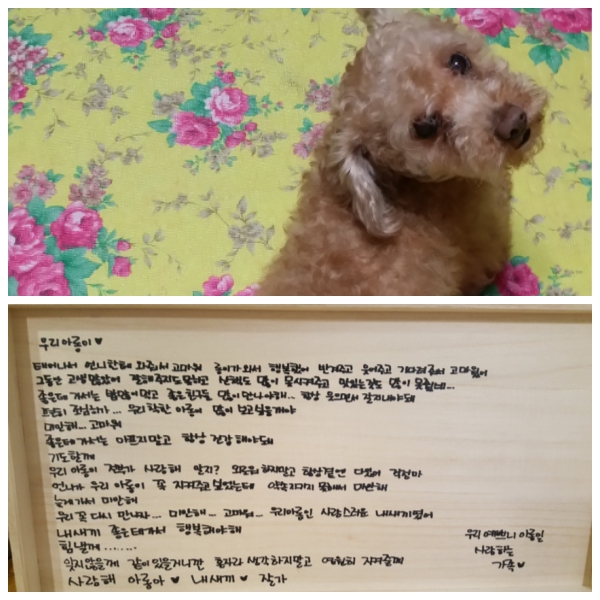 우리 아롱이 ♥
태어나서 언니한테 와줘서 고마워 롱이가 와서 행복했어 반겨주고 웃어주고 기다려줘서 고마웠어
그동안 고생 많았어 잘해주지도 못하고 산책도 많이 못시켜주고 맛있는것도 많이 못줬네...
좋은데 가서는 밥많이먹고 좋은친구들 많이 만나야해.. 항상 웃으면서 잘지내야돼
조심히 가... 우리 착한 아롱이 많이 보고싶을꺼야
미안해... 고마워
좋은데가서는 아프지말고 항상 건강해야돼
기도할께
우리 아롱이 진짜 사랑해 알지? 외로워하지말고 항상곁엔 다있어 걱정마
언니가 우리 아롱이 꼭 지켜주고싶었는데 약속지키지 못해서 미안해
늦게가서 미안해
우리 꼭 다시 만나자... 미안해... 고마워.. 우리아롱인 사랑스러운 내새끼였어
내새끼 좋은데가서 행복해야해
힘낼께.......
잊지않을께 같이있을거니깐 혼자라 생각하지말고 영원히 지켜줄께
사랑해 아롱아 ♥ 내새끼 ♥ 잘가
우리 이쁜니 아롱인
사랑하는
가족 ♥